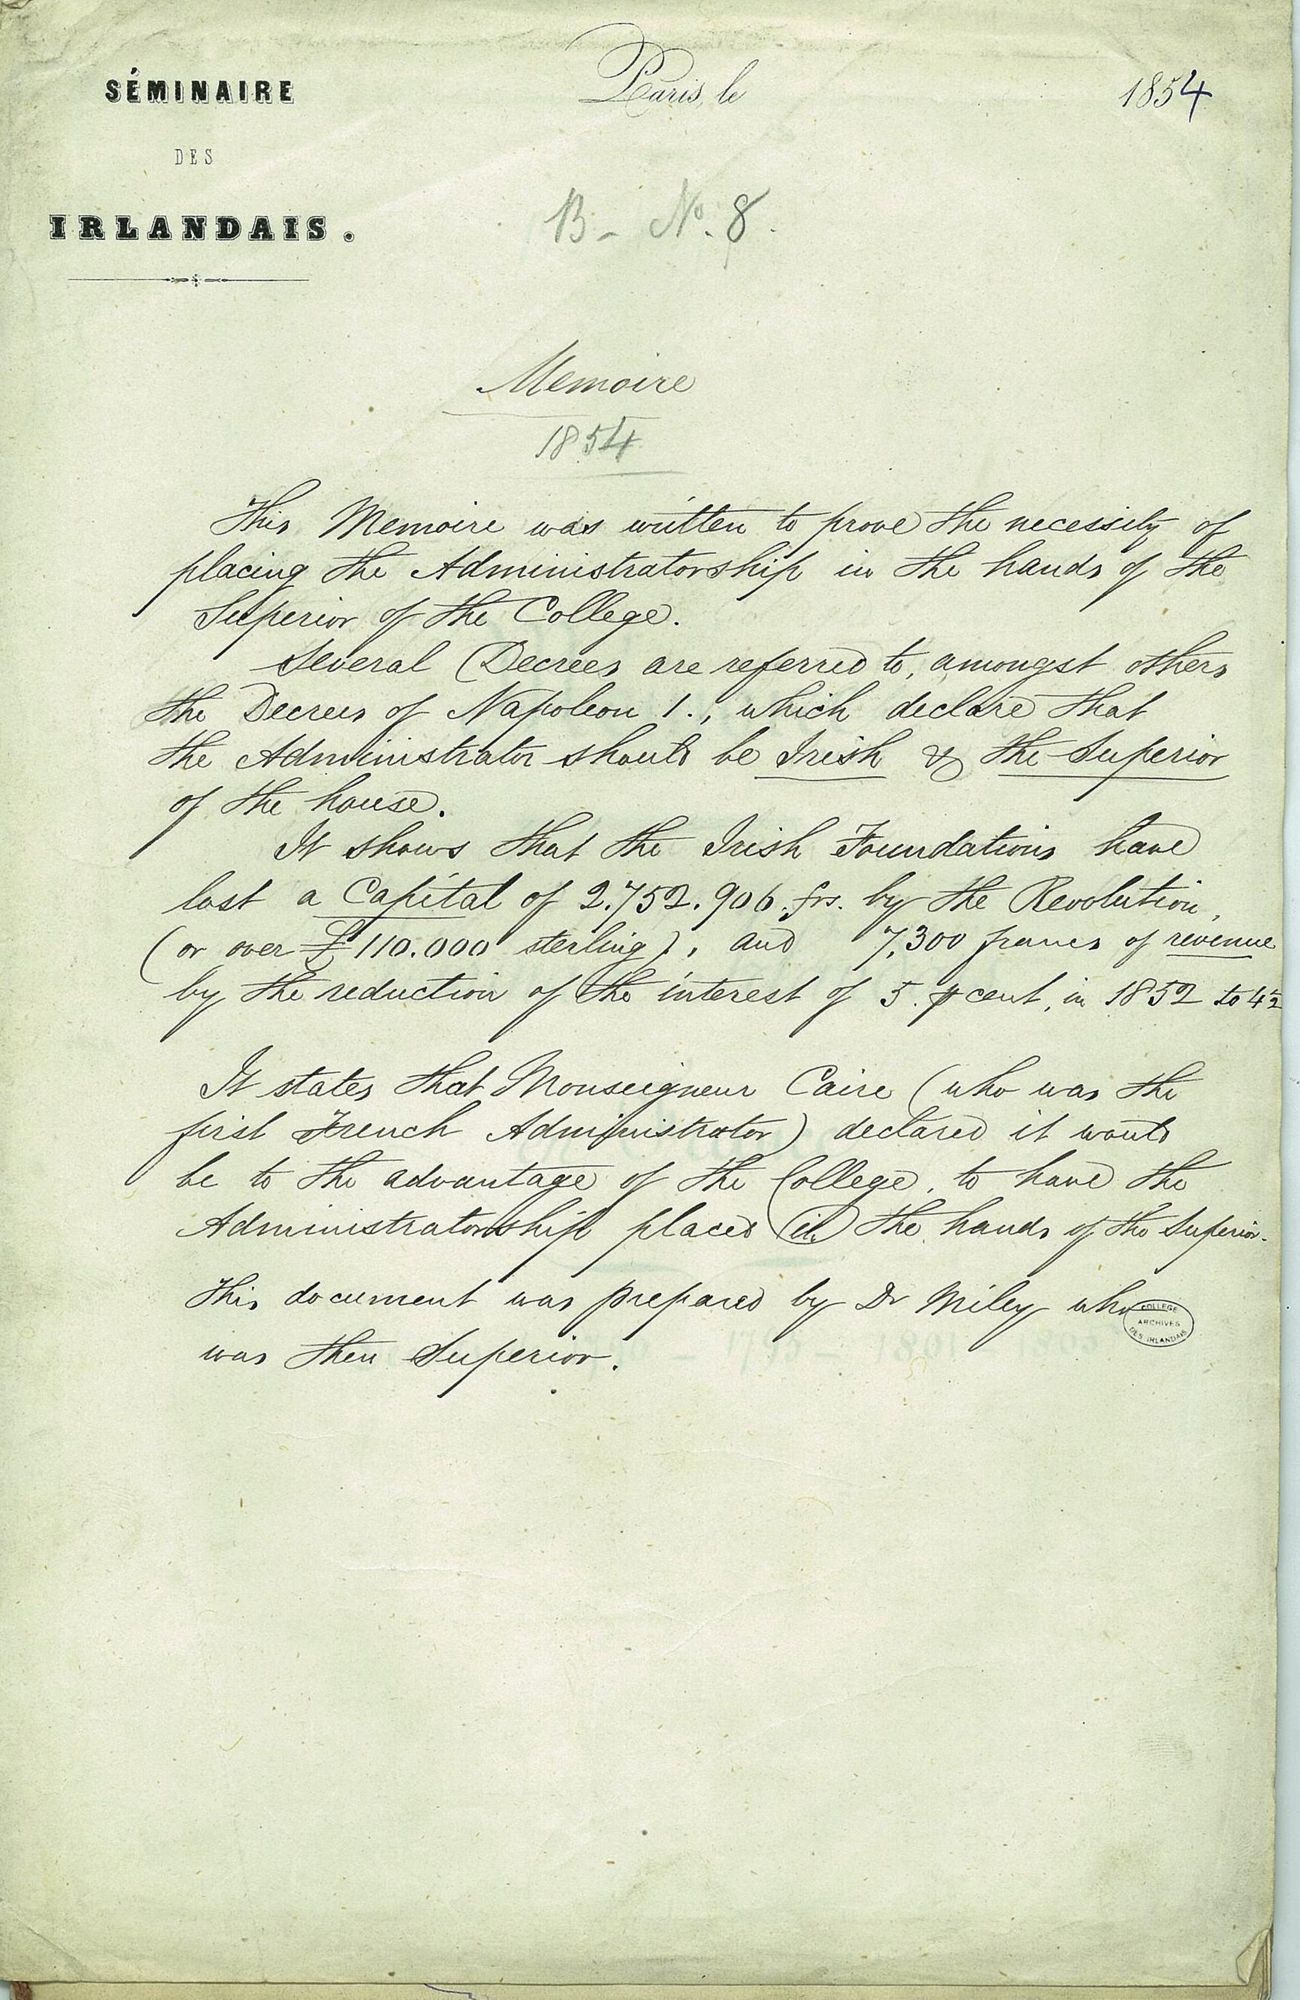 SÉMINAIRE
DES
IRLANDAIS.
Paris, le 1854
B - No. 8.
Memoire
1854
This Memoire was written to prove the necessity of
placing the Administratorship in the hands of the
Superior of the College.
Several Decrees are referred to, amongst others
the Decrees of Napoleon 1., which declare that
the Administrator should be Irish & the Superior
of the house.
It shows that the Irish Foundations have
lost a Capital of 2.752.906. frs. by the Revolution,
(or over £110.000 sterling), and 7,300 francs of revenue
by the reduction of the interest of 5. p cent, in 1852 to 4½
It states that Monseigneur Caire (who was the
first French Administrator) declared it would
be to the advantage of the College, to have the
Administratorship placed in the hands of the Superior.
This document was prepared by Dr Miley who
was then Superior.
COLLEGE
ARCHIVES
DES IRLANDAIS